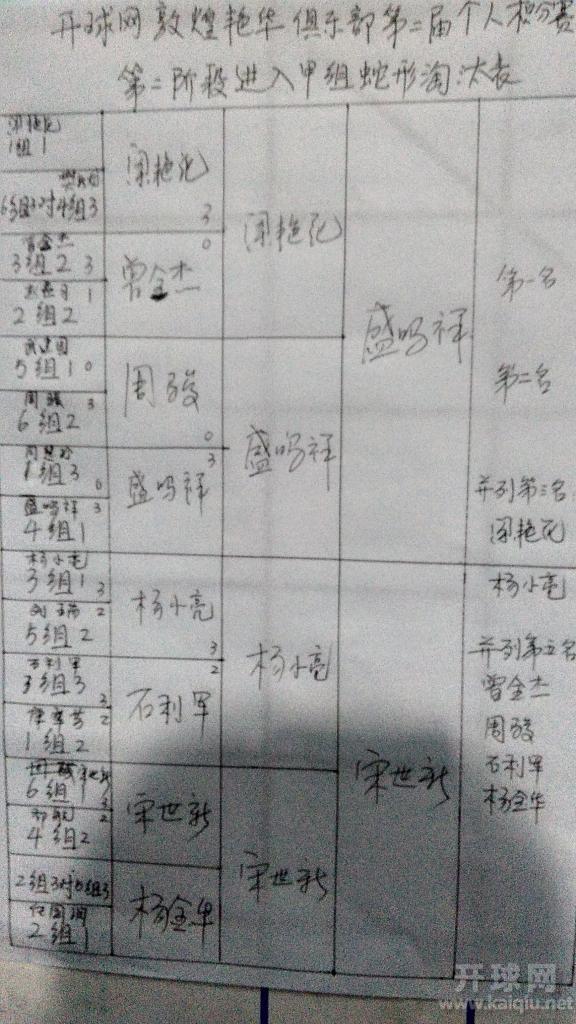 开球网敦煌艳华俱乐部第二届个人积分赛
第二阶段进入甲组蛇形淘汰表
闵艳花
1组1
6组3对4组3
曾金杰
3组2 3
1
2组2
5组1 0
周骏 3
6组2
1组3
0
盛鸣祥 3
4组1
杨小亮
3组1
3
2
5组2
石利军
3组3
3
2
1组2
宋世新
6组1
3
2
4组2
2组3对5组3
2组1
闵艳花
3
0
曾金杰
周骏
0
3
盛鸣祥
杨小亮
3
2
石利军
宋世新
杨金华
闵艳花
盛鸣祥
杨小亮
宋世新
盛鸣祥
宋世新
第一名
第二名
并列第三名
闵艳花
杨小亮
并列第五名
曾金杰
周骏
石利军
杨金华
开球网
www.kaiqiu.net